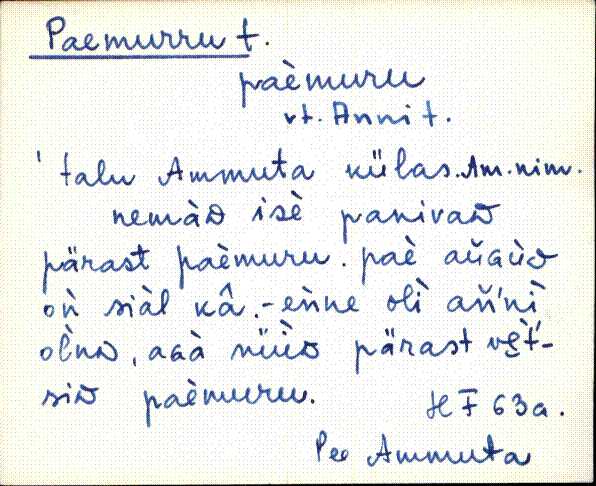 Paemurru t.
paèmuru
vt. Anni t.
' talu Ammuta külas. Am. nim.
nemàᴅ isè panivaᴅ
pärast paèmuru. paè aŭɢùᴅ
oǹ siàl kâ. - eǹne olì ań'nì
olǹᴅ, aɢà nüìᴅ pärast vȩ̀t'-
siᴅ paèmuru.
HF 63a.
Pee Ammuta